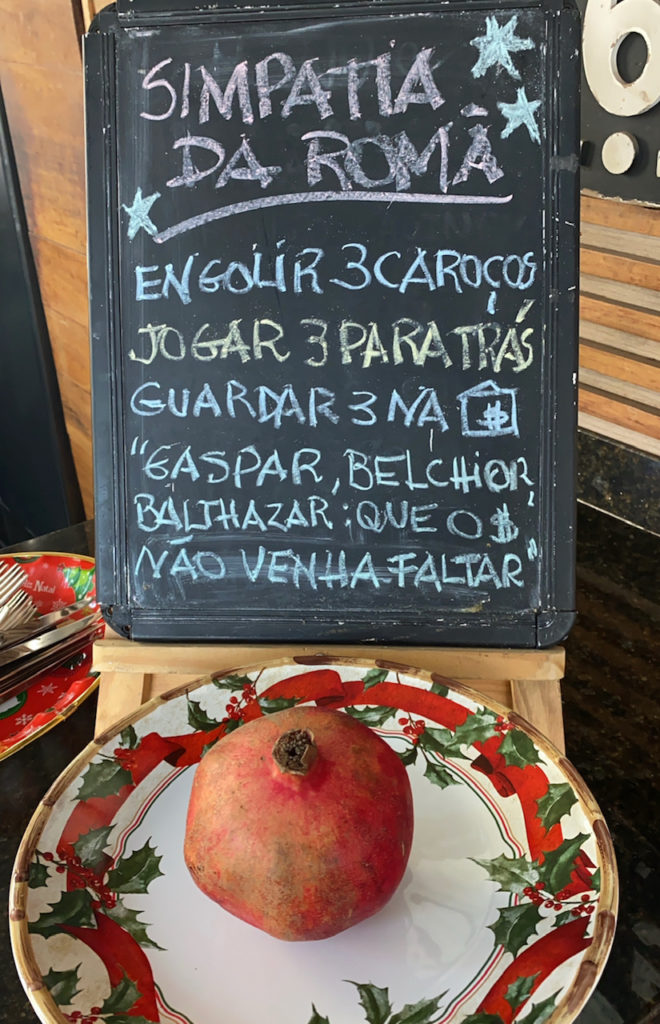 SIMPATIA
DA ROMÃ
ENGOLIR 3 CAROÇOS
JOGAR 3 PARA TRÁS
GUARDAR 3 NA $
"GASPAR, BELCHIOR,
BALTHAZAR: QUE O $
NÃO VENHA FALTAR"
6
Natal